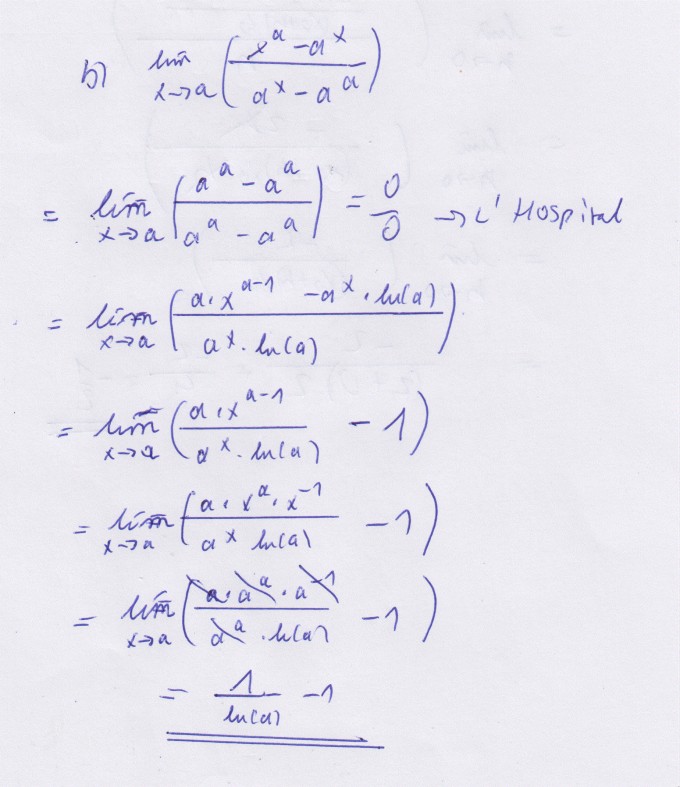 b) lim x→a ( (x^a - a^x) / (a^x - a^a) )
= lim x→a ( (a^a - a^a) / (a^a - a^a) ) = 0/0 → L' Hospital
= lim x→a ( (a · x^(a-1) - a^x · ln(a)) / (a^x · ln(a)) )
= lim x→a ( (a · x^(a-1)) / (a^x · ln(a)) - 1 )
= lim x→a ( (a · x^a · x^(-1)) / (a^x ln(a)) - 1 )
= lim x→a ( (a · a^a · a^(-1)) / (a^a · ln(a)) - 1 )
= 1 / ln(a) - 1